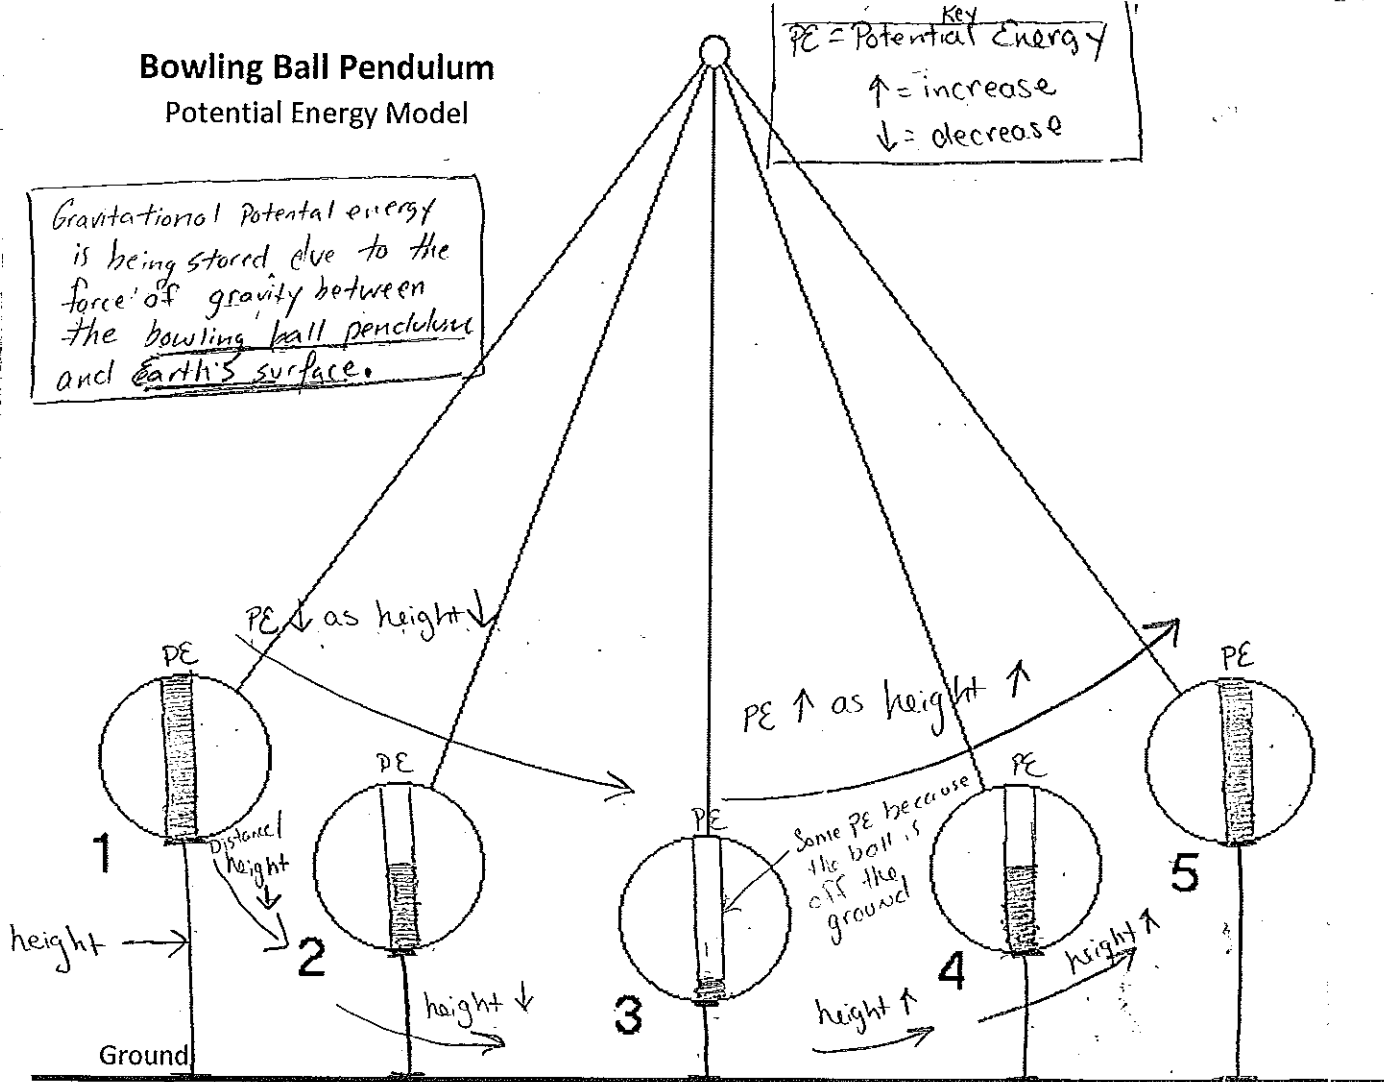 Bowling Ball Pendulum
Potential Energy Model
Key
PE = Potential Energy
↑ = increase
↓ = decrease
Gravitational Potental energy
is being stored due to the
force of gravity between
the bowling ball pendulum
and Earth's surface.
PE ↓ as height ↓
PE ↑ as height ↑
PE
PE
PE
PE
PE
Some PE because
the ball is
off the
ground
1
Distance/
height
↓
2
3
4
5
height →
height ↓
height ↑
height ↑
Ground